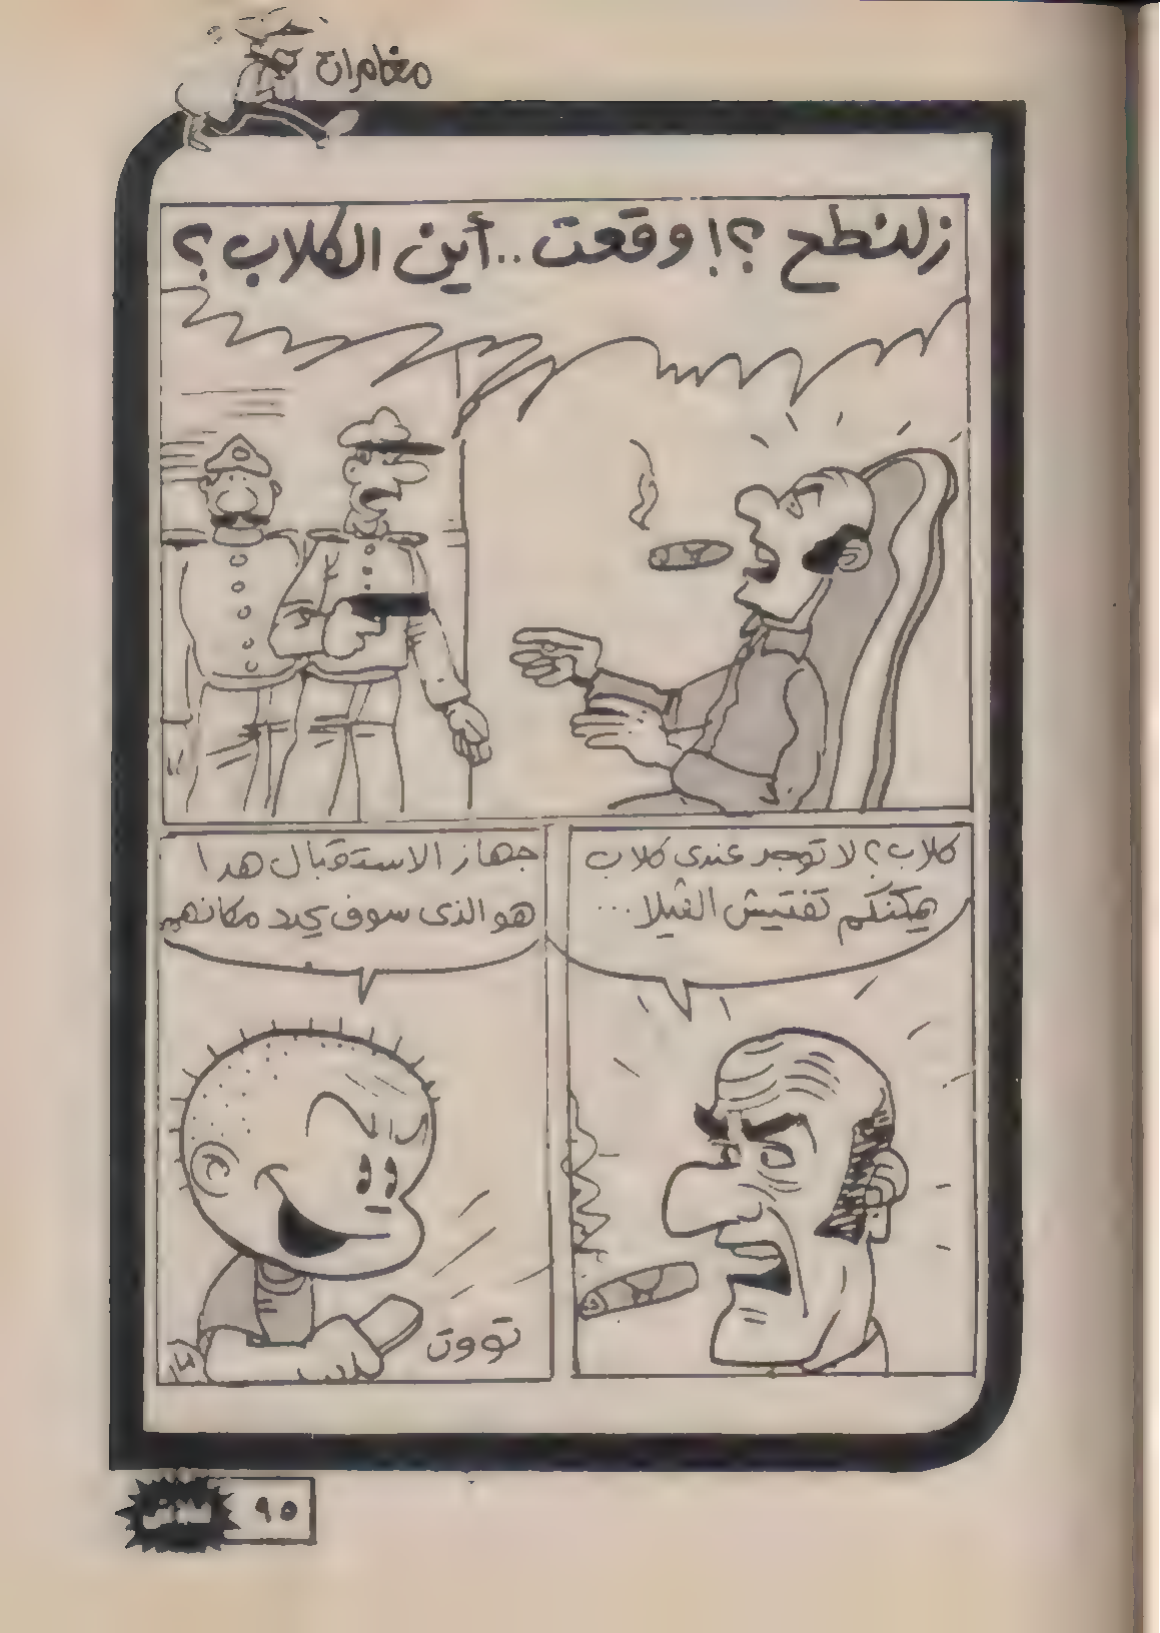 مغامرات
زلنطح ؟! وقعت .. أين الكلاب ؟
كلاب ؟ لا توجد عندى كلاب
يمكنكم تفتيش الڤيلا ...
جهاز الاستقبال هذا
هو الذى سوف يحدد مكانهم
تووت
٩٥
فلاش